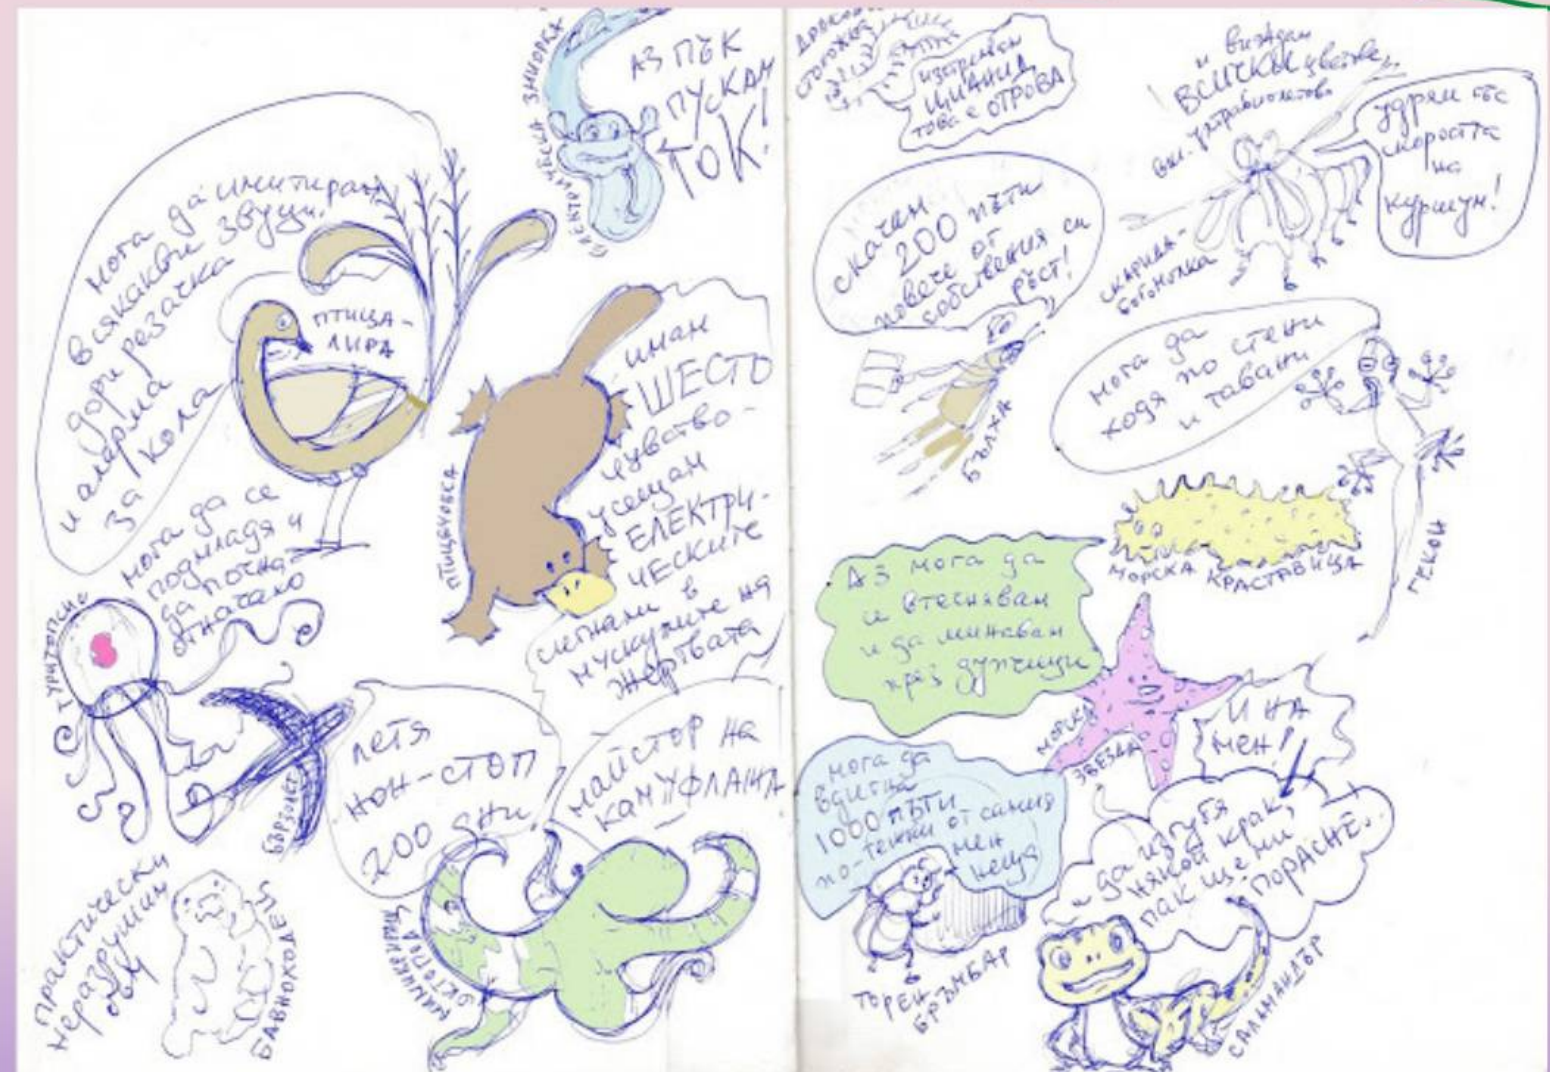 мога да имитирам
всякакви звуци.
дори резачка
и аларма
за кола
ПТИЦА-
ЛИРА
ЕЛЕКТРИЧЕСКА ЗМИОРКА
АЗ ПЪК
ПУСКАМ
ТОК!
имам
ШЕСТО
чувство-
усещам
ЕЛЕКТРИ-
ЧЕСКИТЕ
сигнали в
мускулите на
жертвата
ПТИЦЕЧОВКА
мога да се
подмладя и
да почна
отначало
ТУРИТОПСИС
летя
нон-стоп
200 дни
БЪРЗОЛЕТ
майстор на
камуфлажа
МИМИКРИРАЩ
ОКТОПОД
ПРАКТИЧЕСКИ
неразрушим
съм
БАВНОХОДЕЦ
СТОНОЖКА
изстрелвам
ЦИАНИД
ТОВА Е ОТРОВА
и виждам
ВСИЧКИ цветове,
вкл. ултравиолетово
удрям със
скоростта
на
куршум!
СКАРИДА-
БОГОМОЛКА
скачам
200 пъти
повече от
собствения си
ръст!
БЪЛХА
мога да
ходя по стени
и тавани
ГЕКОН
МОРСКА КРАСТАВИЦА
АЗ мога да
и втеснявам
и да минавам
през дупчици
МОРСКА
ЗВЕЗДА
И НА
МЕН!
мога да
вдигна
1000 пъти
по-тежки от самия
мен
неща
ТОРЕН
БРЪМБАР
да изгубя
някой крак,
пак ще ми
ПОРАСНЕ..
САЛАМАНДЪР